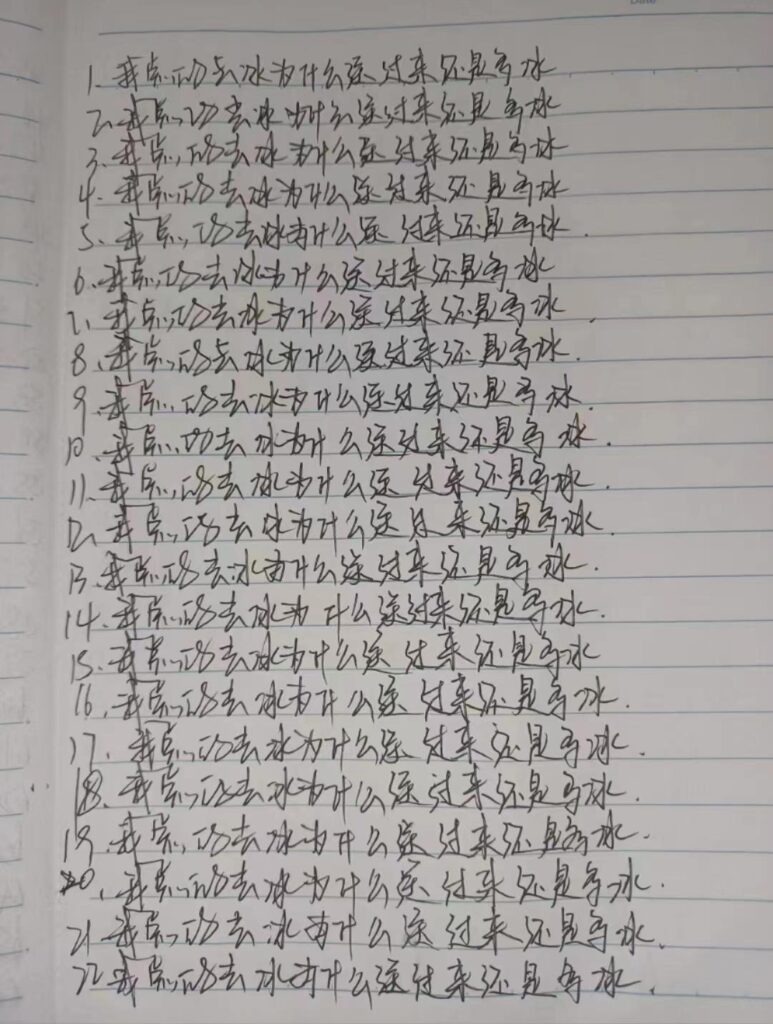 1. 我点的去冰为什么送过来还是多冰
2、我点的去冰为什么送过来还是多冰
3. 我点的去冰为什么送过来还是多冰
4. 我点的去冰为什么送过来还是多冰
5、我点的去冰为什么送过来还是多冰.
6、我点的去冰为什么送过来还是多冰
7、我点的去冰为什么送过来还是多冰.
8、我点的去冰为什么送过来还是多冰.
9、我点的去冰为什么送过来还是多冰.
10、我点的去冰为什么送过来还是多冰.
11、我点的去冰为什么送过来还是多冰.
12、我点的去冰为什么送过来还是多冰.
13、我点的去冰为什么送过来还是多冰.
14、我点的去冰为什么送过来还是多冰.
15、我点的去冰为什么送过来还是多冰
16、我点的去冰为什么送过来还是多冰.
17、我点的去冰为什么送过来还是多冰.
18、我点的去冰为什么送过来还是多冰.
19、我点的去冰为什么送过来还是多冰.
20、我点的去冰为什么送过来还是多冰.
21、我点的去冰为什么送过来还是多冰.
22、我点的去冰为什么送过来还是多冰.